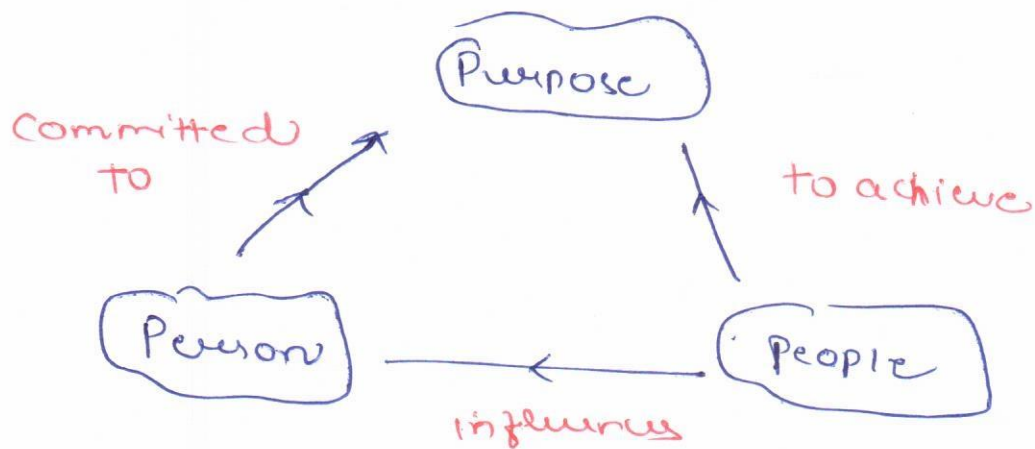 Purpose
Committed
to
to achieve
Person
People
influences